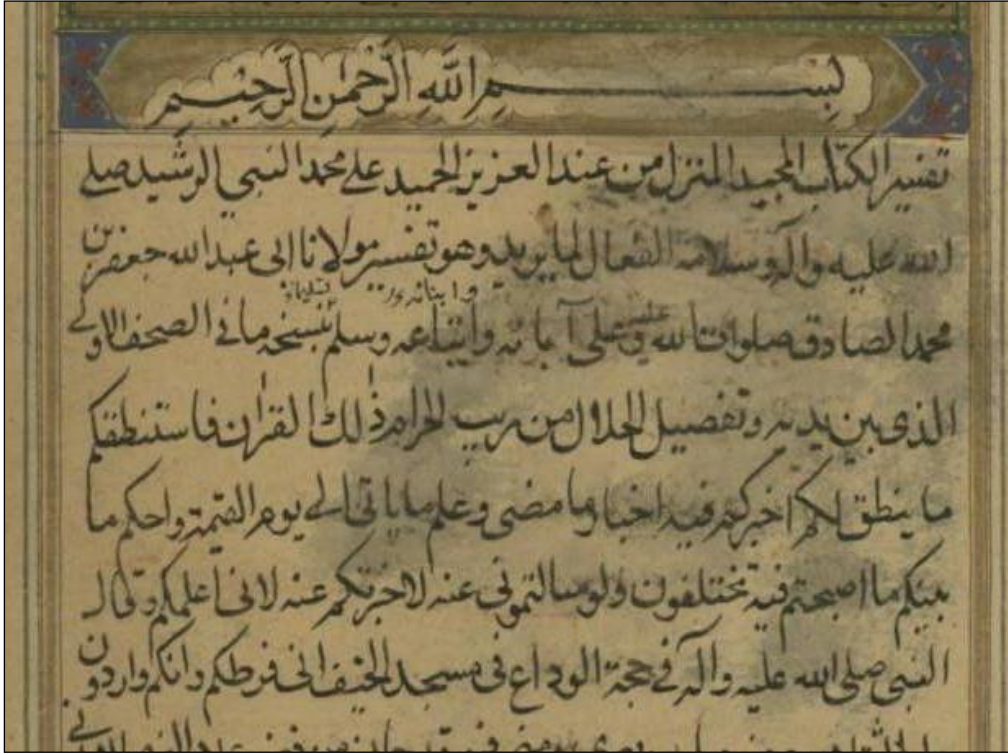 بِسْمِ اللهِ الرَّحْمٰنِ الرَّحِيْمِ
تفسير الكتاب المجيد المنزل من عند العزيز الحميد على محمد النبي الرشيد صلى
الله عليه وآله وسلامه الفعال لما يريد وهو تفسير مولانا ابي عبد الله جعفر بن
وابنائه
محمد الصادق صلوات الله عليه وعلى آبائه واتباعه وسلم بنسخة ما في الصحف الاولى
الذي بين يديه وتفصيل الحلال من ريب الحرام ذلك القرآن فاستنطقكم
ما ينطق لكم اخبركم فيه اخبار ما مضى وعلم ما ياتي الى يوم القيمة واحكم ما
بينكم ما اصبحتم فيه تختلفون ولو سالتموني عنه لاخبرتكم عنه لاني اعلمكم وقال
النبي صلى الله عليه وآله في حجة الوداع في مسجد الخيف اني فرطكم وانكم واردون